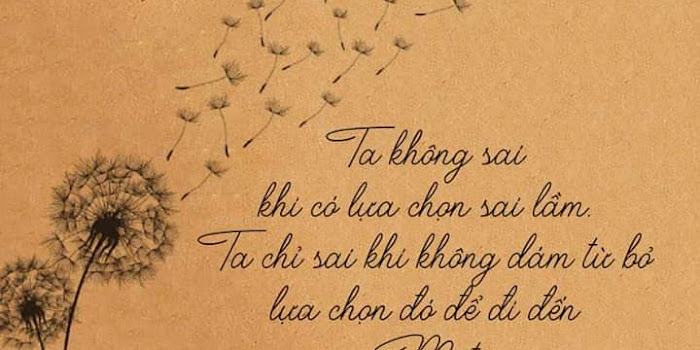 Ta không sai
khi có lựa chọn sai lầm.
Ta chỉ sai khi không dám từ bỏ
lựa chọn đó để đi đến